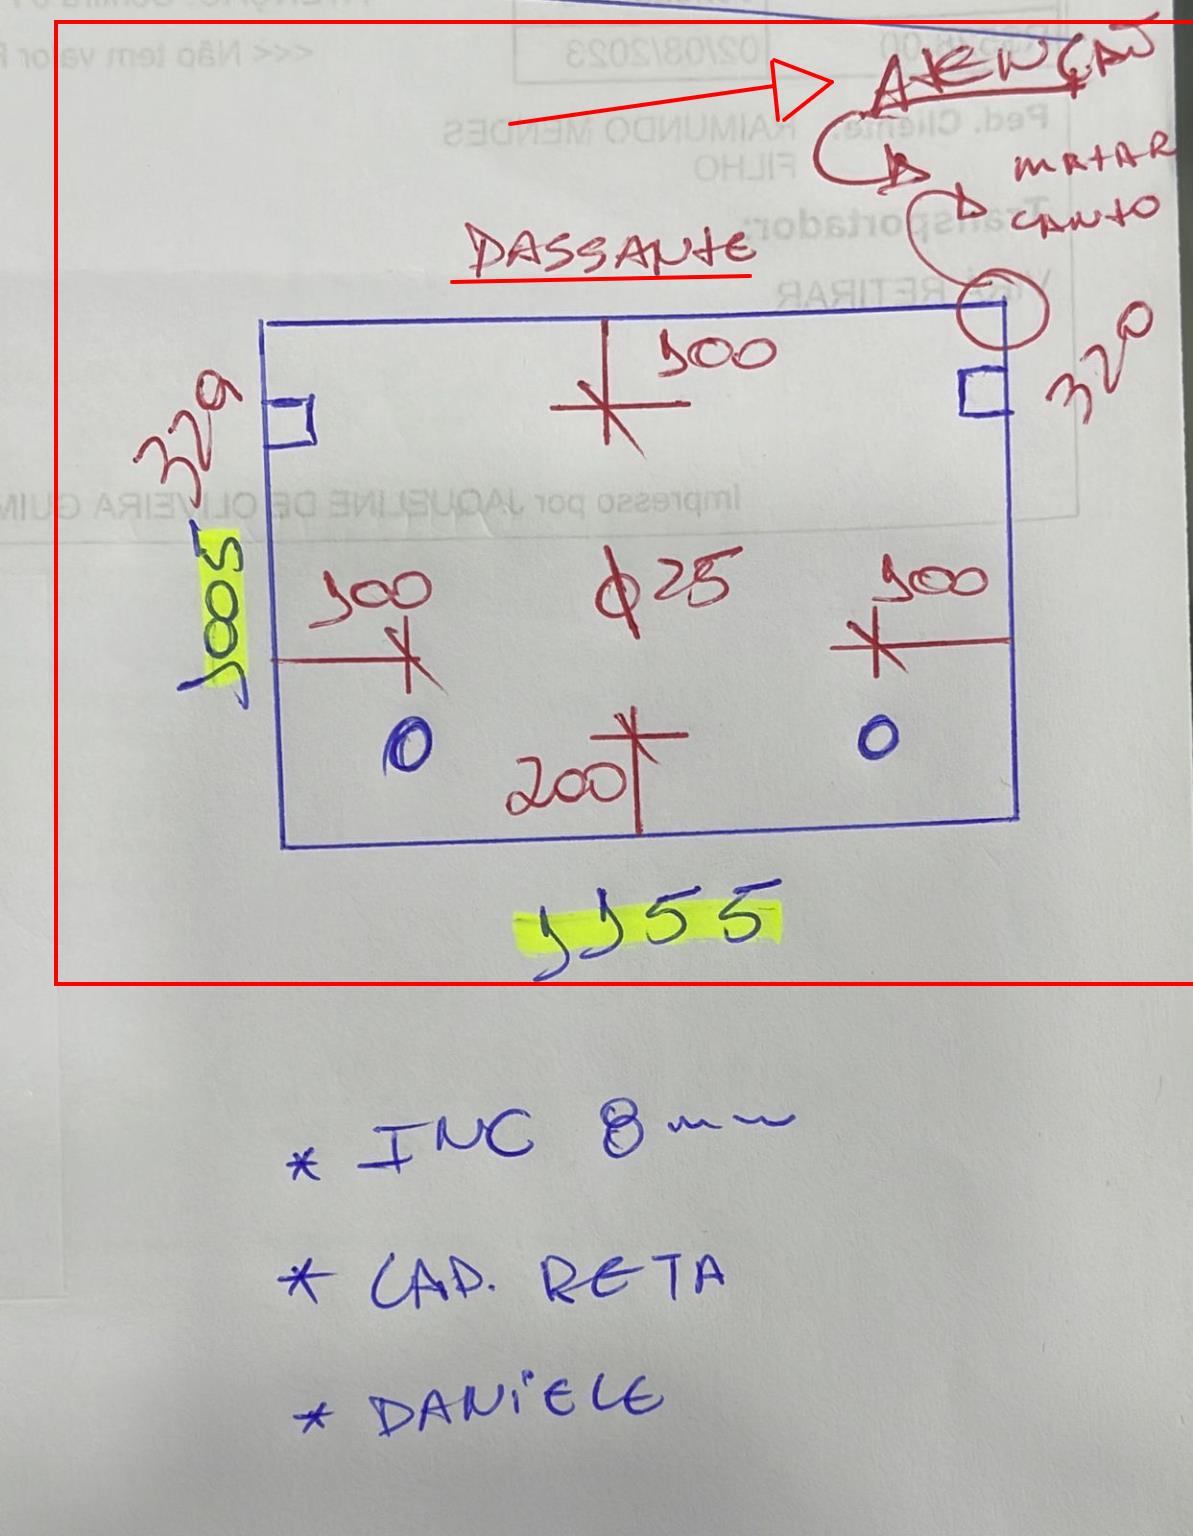 ATENÇÃO
MATAR
CANTO
PASSANTE
100
329
320
1005
100
Φ25
100
200
1155
* INC 8mm
* LAP. RETA
* DANIELE
02/08/2023
<<< Não tem valor
Ped. Cliente: RAIMUNDO MENDES
FILHO
Transportador:
RETIRAR
Impresso por JAQUELINE DE OLIVEIRA